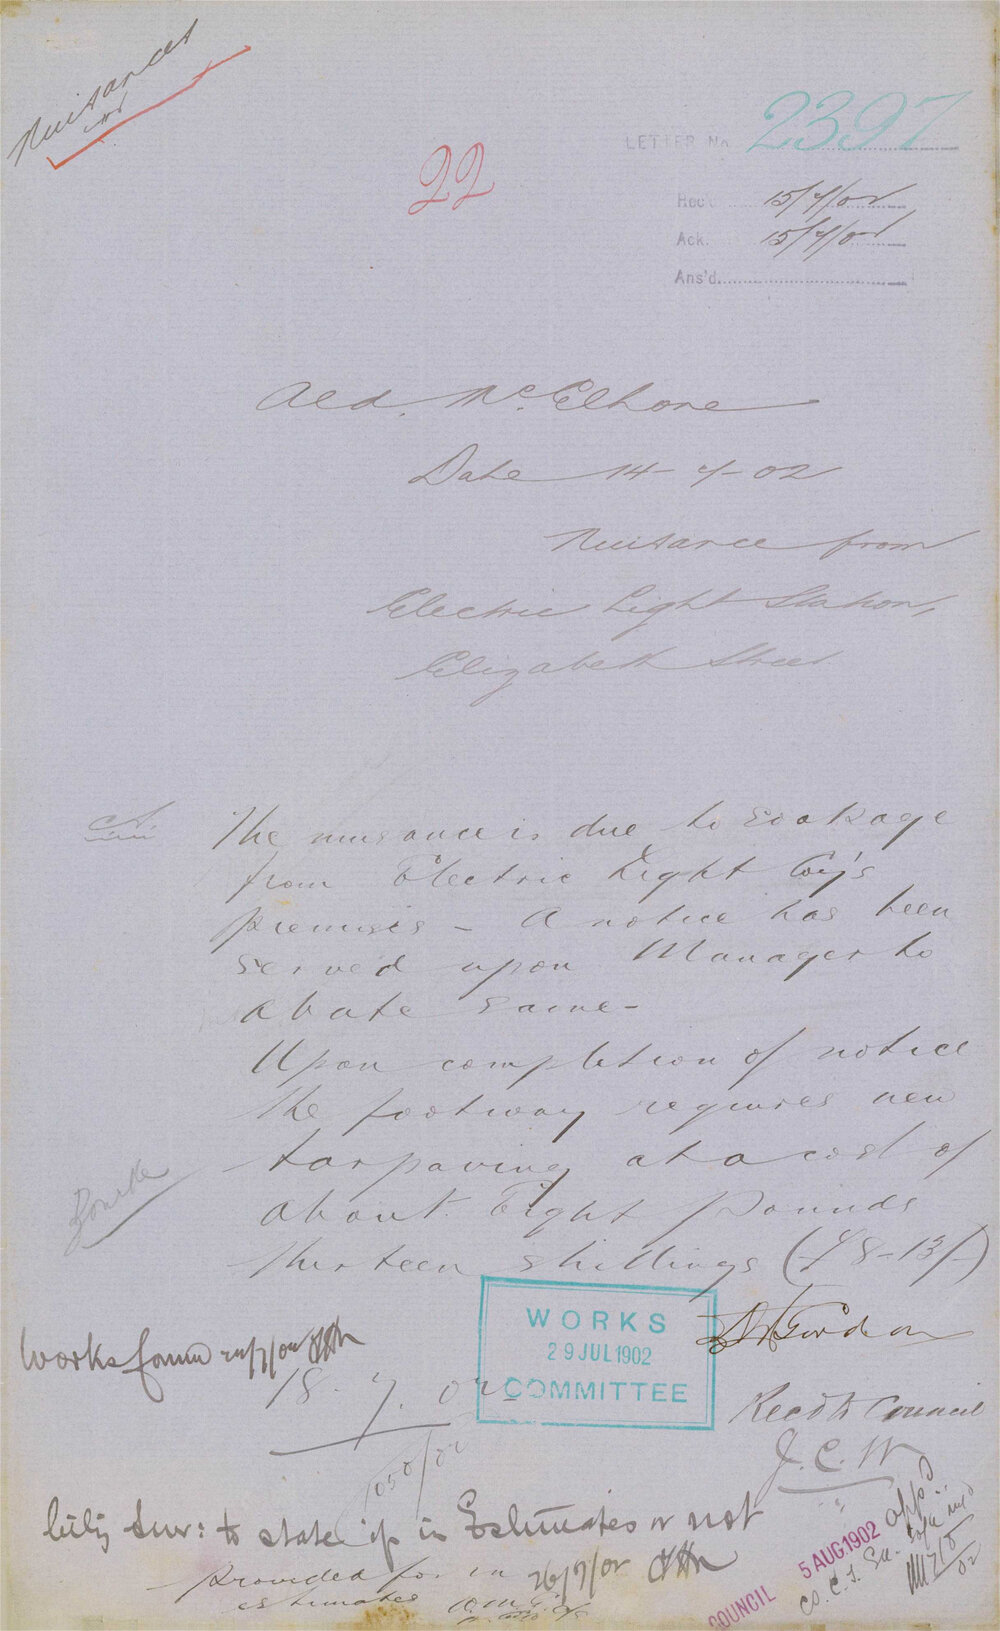 Nuisances
22
LETTER No. 2397
Rec'd 15/7/02
Ack. 15/7/02
Ans'd.
Ald. McElhone
Date 14-7-02
Nuisance from
Electric Light Station,
Elizabeth Street
The nuisance is due to soakage
from Electric Light Coy's
premises - A notice has been
served upon Manager to
abate same -
Upon completion of notice
the footway requires new
tarpaving at a cost of
about Eight Pounds
thirteen shillings (£8-13/-)
Gordon
18.7.02
Bourke
Works Comm
WORKS
29 JUL 1902
COMMITTEE
Recd to Council
J.C.W
1050/02
City Sur: to state if in Estimates or not
26/7/02
provided for in
estimates
COUNCIL 5 AUG. 1902
appd